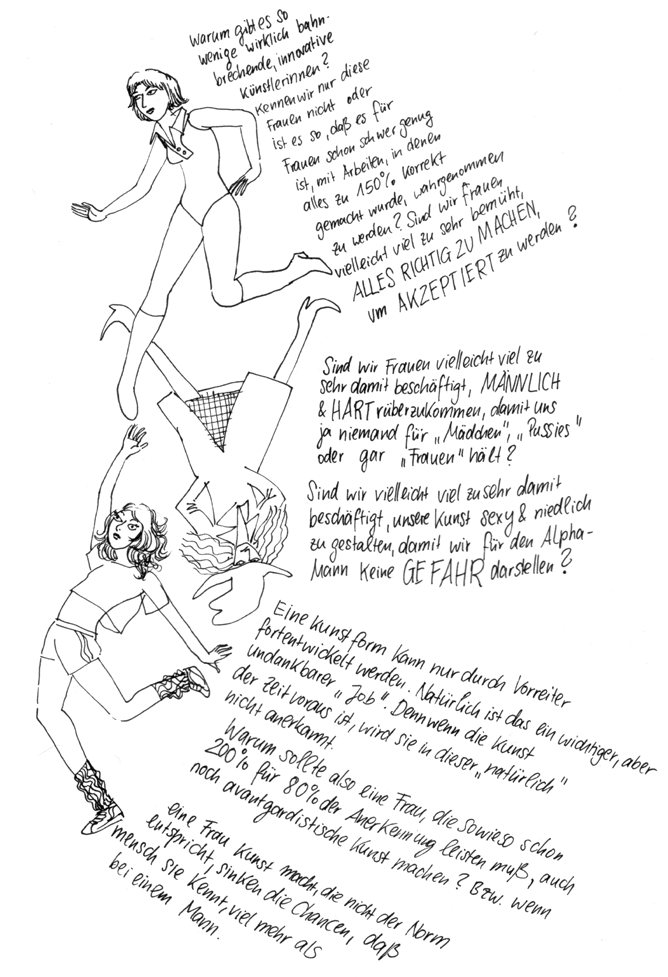 Warum gibt es so
wenige wirklich bahn-
brechende, innovative
Künstlerinnen?
Kennen wir nur diese
Frauen nicht oder
ist es so, daß es für
Frauen schon schwer genug
ist, mit Arbeiten, in denen
alles zu 150% korrekt
gemacht wurde, wahrgenommen
zu werden? Sind wir Frauen
vielleicht viel zu sehr bemüht,
ALLES RICHTIG ZU MACHEN,
um AKZEPTIERT zu werden?
Sind wir Frauen vielleicht viel zu
sehr damit beschäftigt, MÄNNLICH
& HART rüberzukommen, damit uns
ja niemand für „Mädchen", „Pussies"
oder gar „Frauen" hält?
Sind wir vielleicht viel zu sehr damit
beschäftigt, unsere Kunst sexy & niedlich
zu gestalten, damit wir für den Alpha-
Mann keine GEFAHR darstellen?
Eine Kunstform kann nur durch Vorreiter
fortentwickelt werden. Natürlich ist das ein wichtiger, aber
undankbarer „Job". Denn wenn die Kunst
der Zeit voraus ist, wird sie in dieser „natürlich"
nicht anerkannt.
Warum sollte also eine Frau, die sowieso schon
200% für 80% der Anerkennung leisten muß, auch
noch avantgardistische Kunst machen? Bzw. wenn
eine Frau Kunst macht, die nicht der Norm
entspricht, sinken die Chancen, daß
mensch sie kennt, viel mehr als
bei einem Mann.